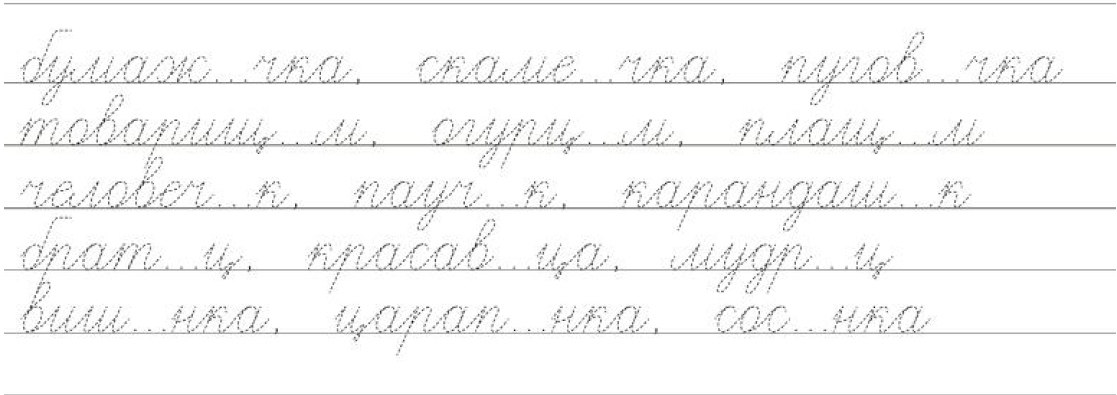 бумаж...чка, скаме...чка, пугов...чка
товарищ...м, огурц...м, плащ...м
человеч...к, пауч...к, карандаш...к
брат...ц, красав...ца, мудр...ц
виш...нка, царап...нка, сос...нка